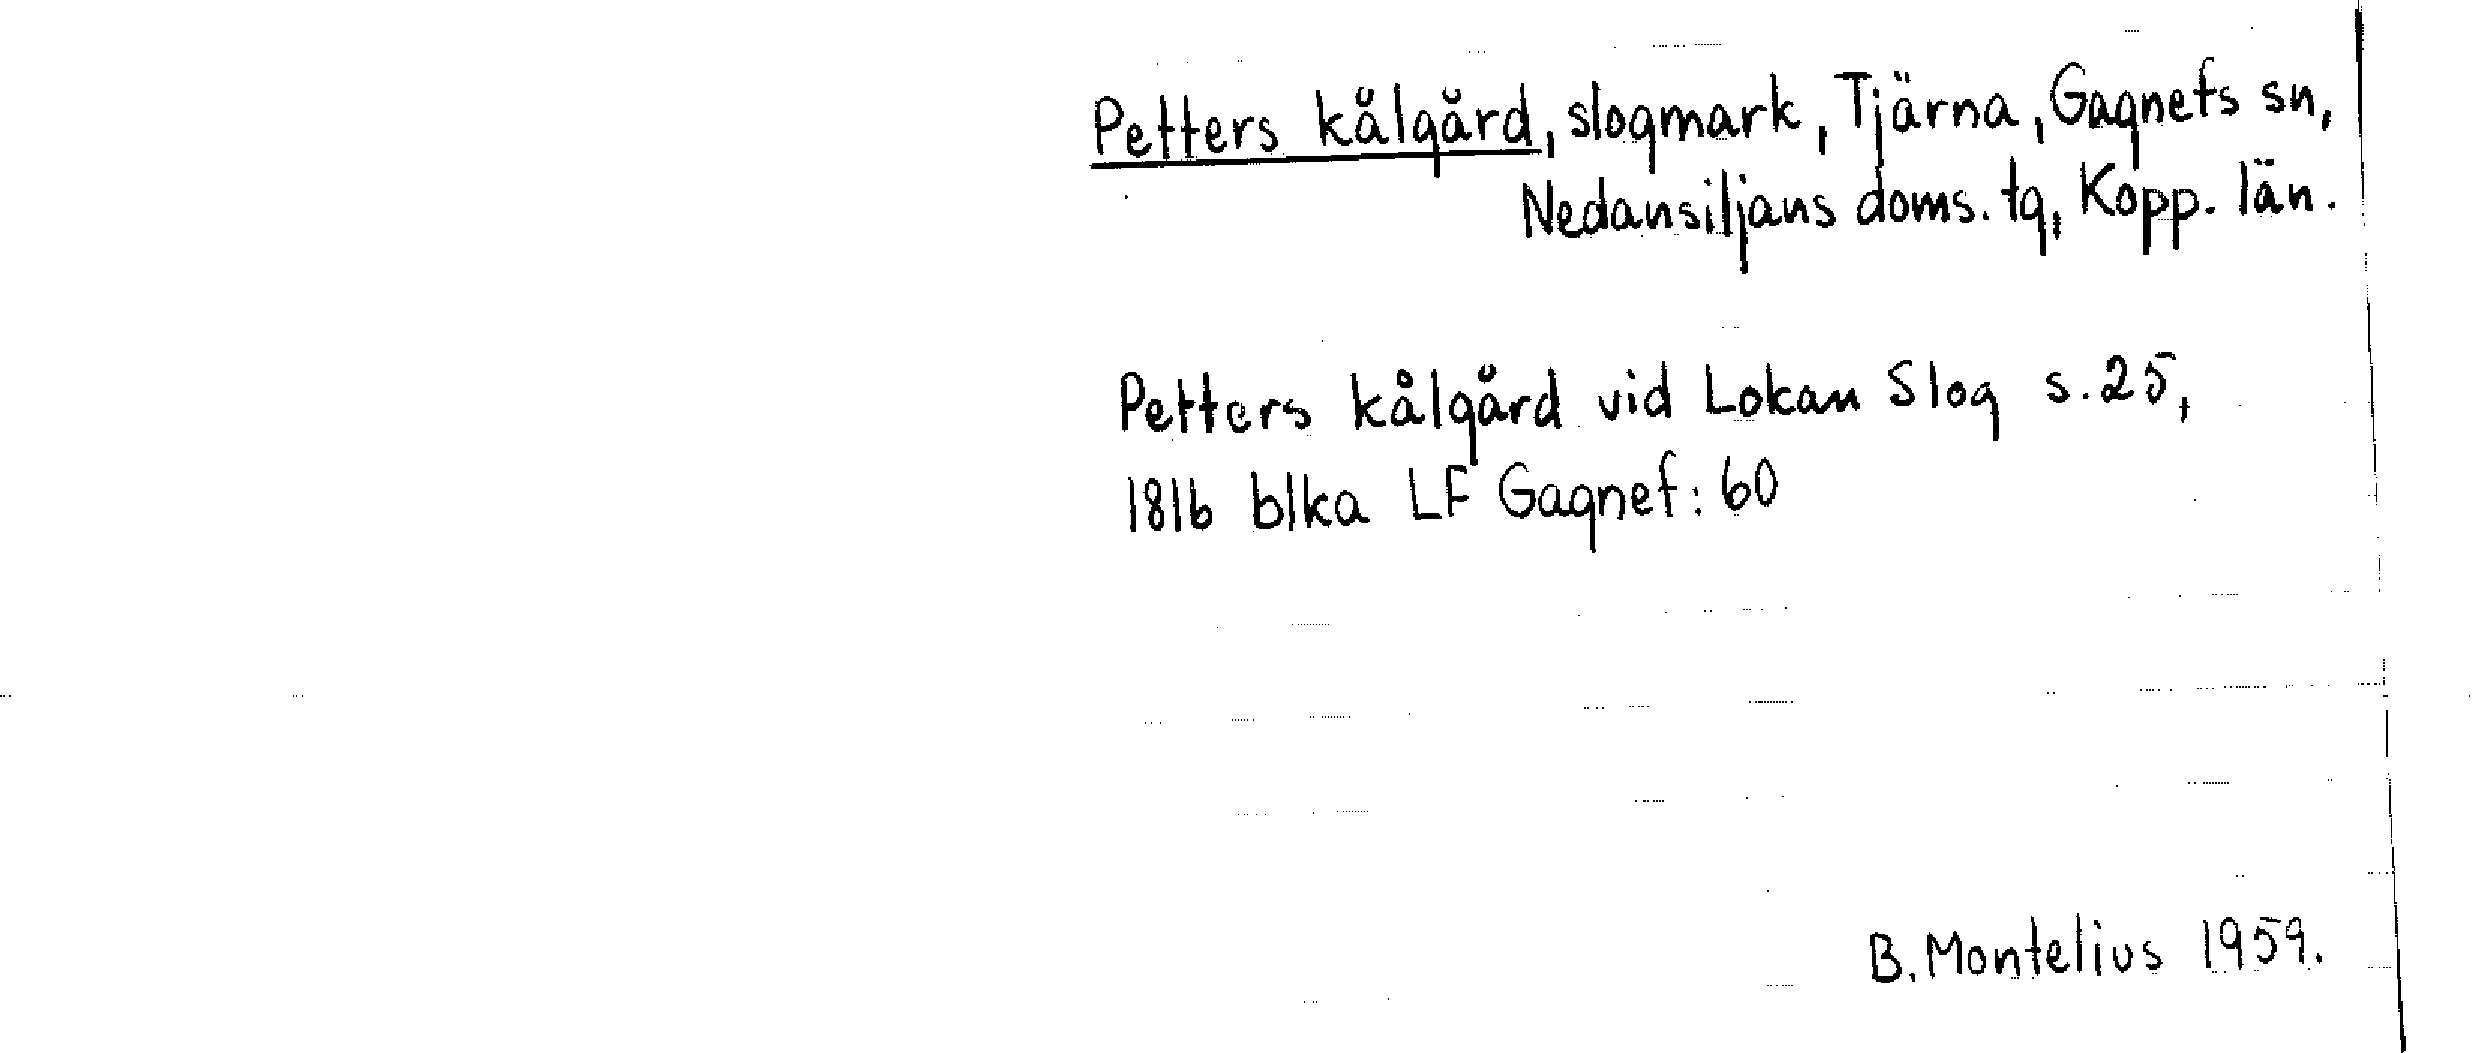 Petters kålgård, slogmark, Tjärna, Gagnefs sn,
Nedansiljans doms. tg, Kopp. län.
Petters kålgård vid Lokan Slog s. 25,
1816 blka LF Gagnef: 60
B. Montelius 1959.